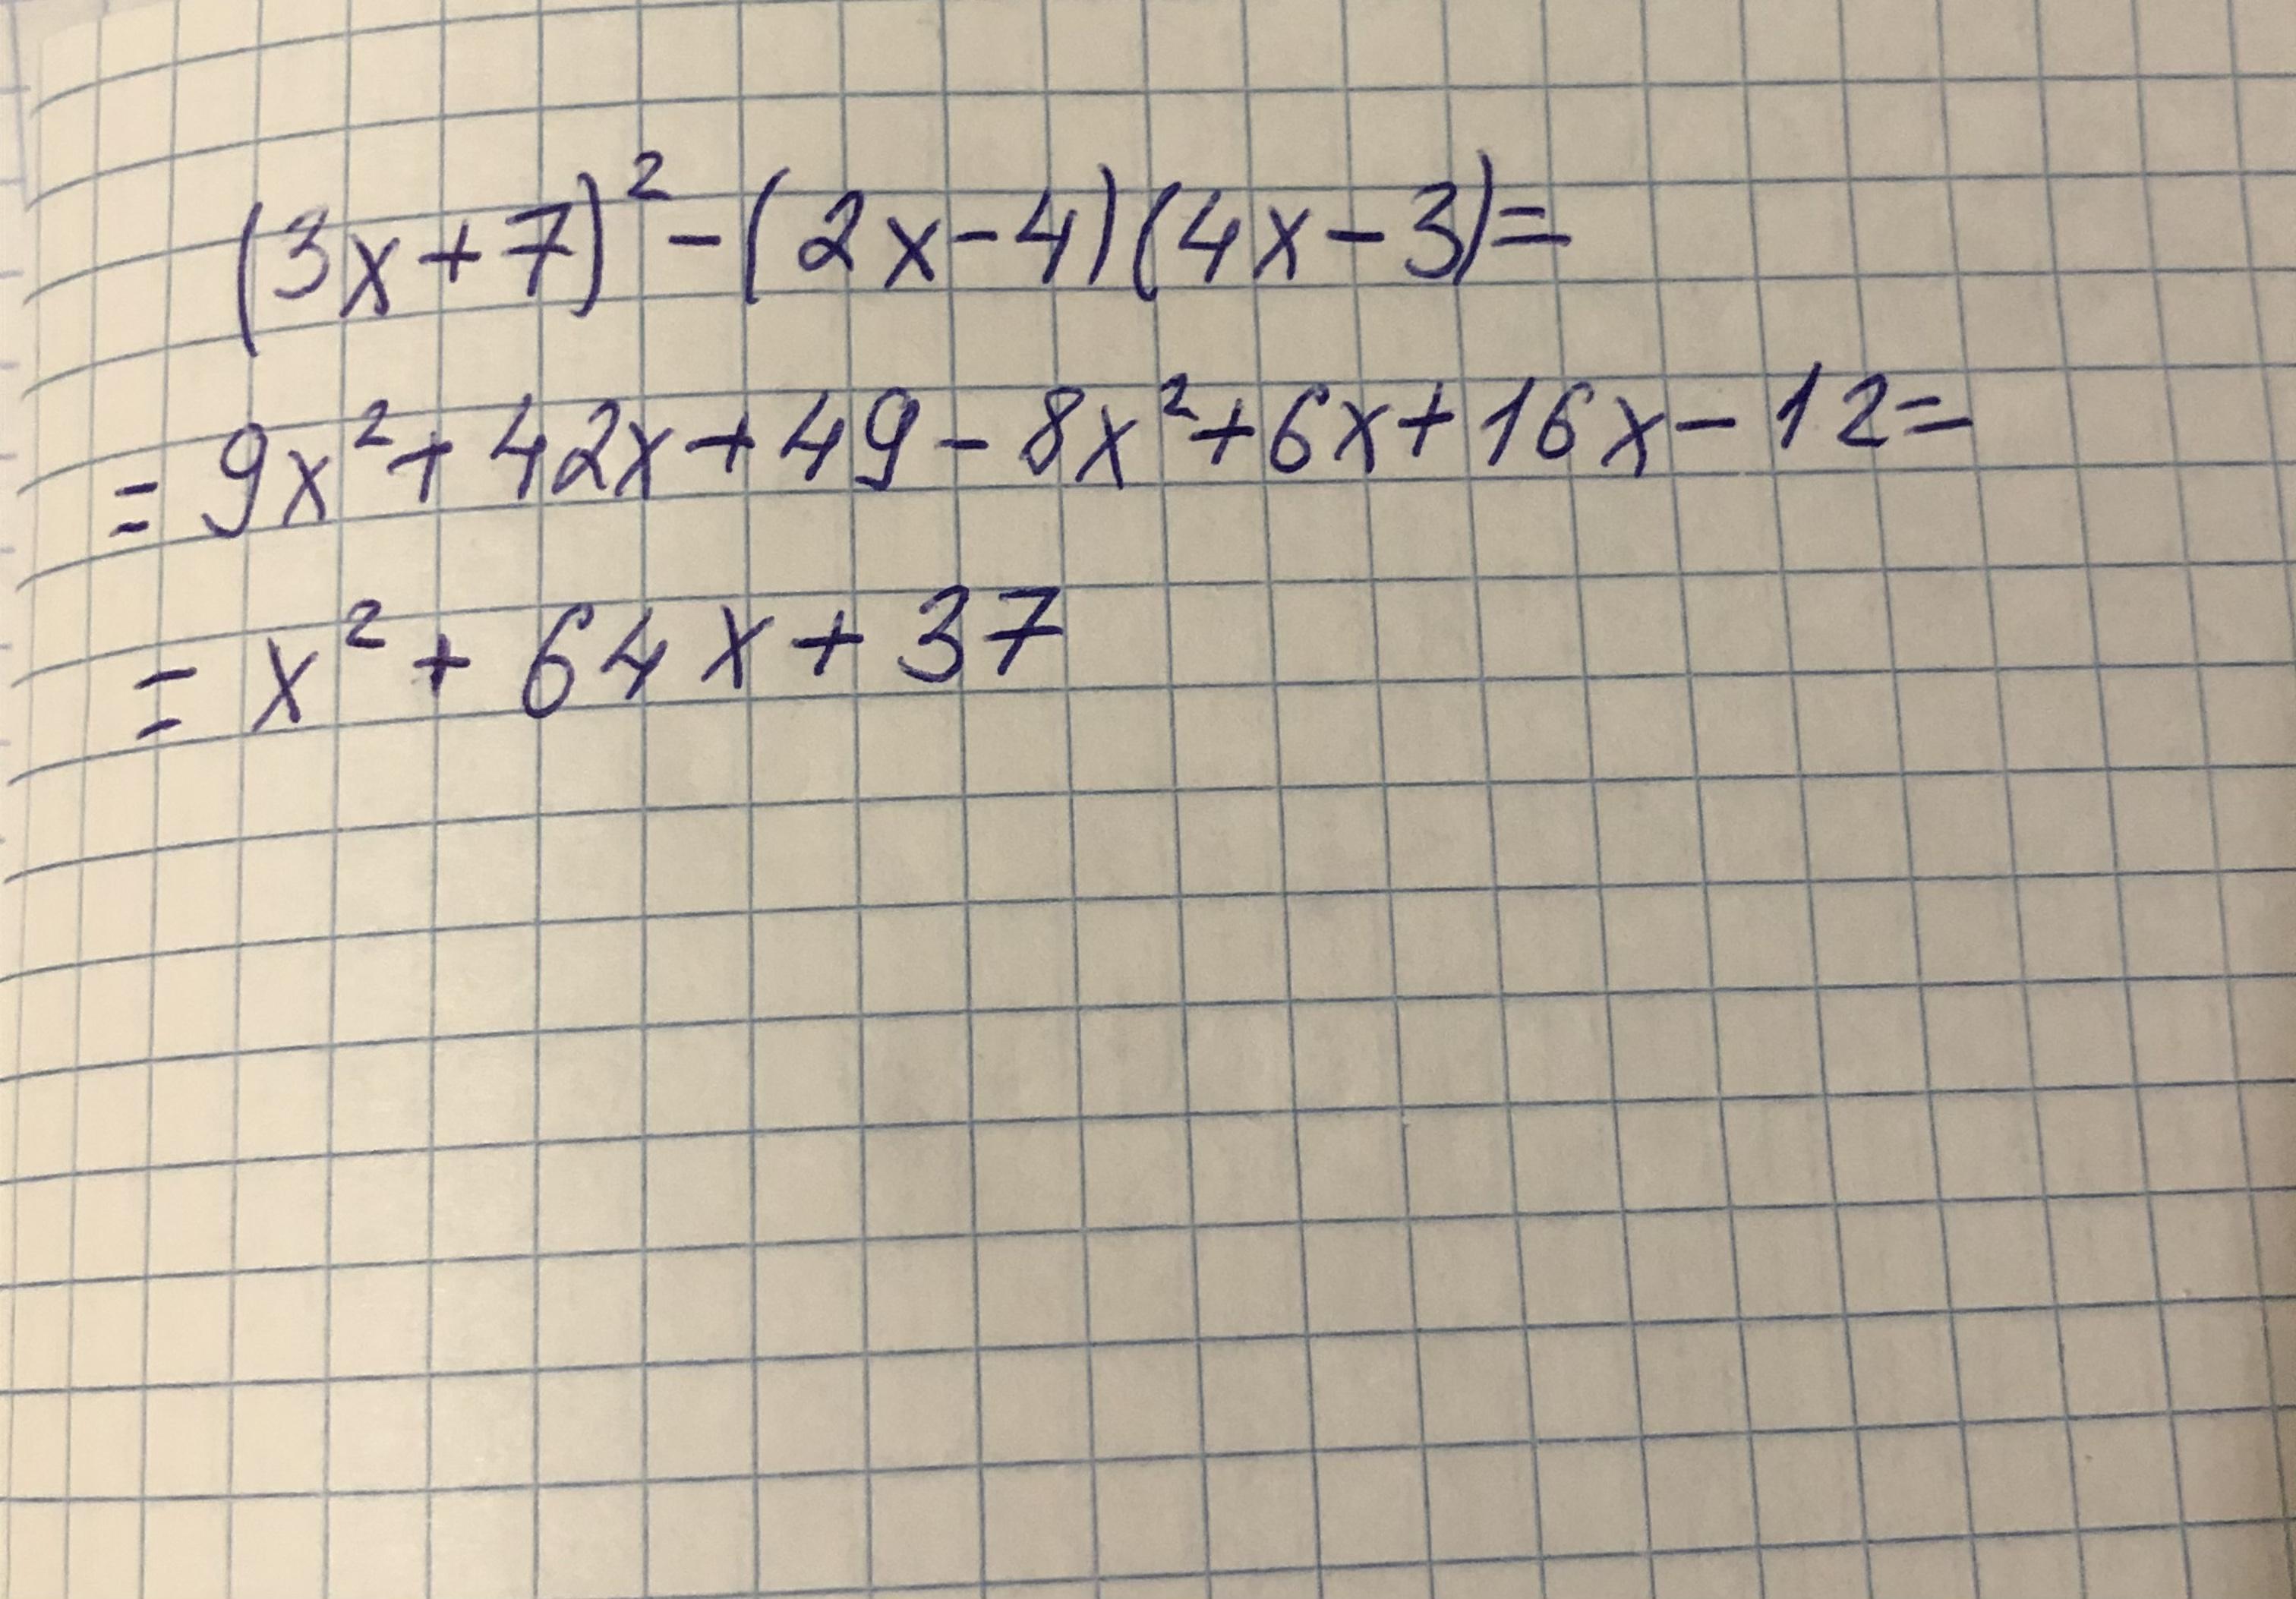 (3x+7)²-(2x-4)(4x-3)=
=9x²+42x+49-8x²+6x+16x-12=
=x²+64x+37